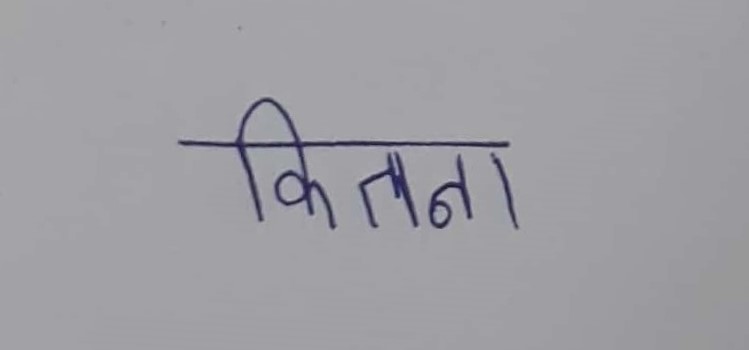 कितना